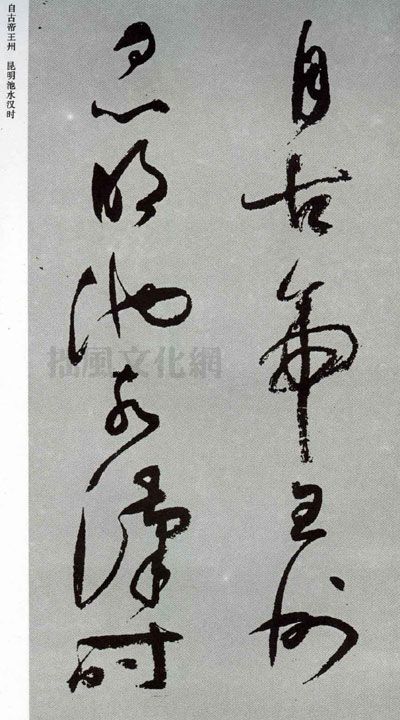 自古帝王州
昆明池水漢时
自古帝王州 昆明池水汉时
掇風文化網